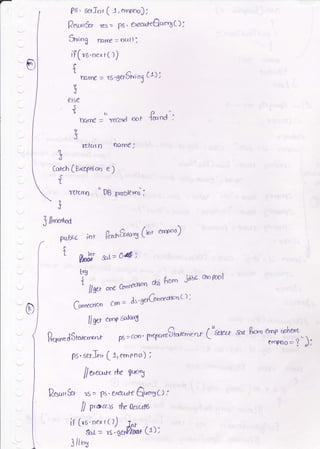 ps. setInt ( 1, empno);
ResultSet rs = ps. executeQuery();
String name = null;
if(rs.next())
{
name = rs.getString (1);
}
else
{
name = "record not found";
}
return name;
}
catch (Exception e)
{
return "DB problem";
}
} //method
public int fetchSalary (int empno)
{
int sal = 0;
try
{ //get one Connection obj from jdbc con pool
Connection con = ds.getConnection();
//get emp salary
PreparedStatement ps = con. prepareStatement ("select sal from emp where
empno=?");
ps.setInt ( 1, empno);
//execute the query
ResultSet rs = ps. execute Query();
// process the Results
if (rs.next())
sal = rs.getInt (1);
} //try